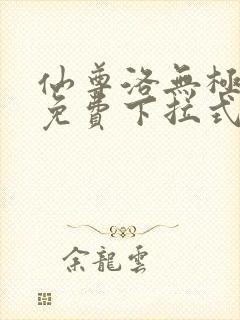 仙尊洛無極
免費下拉式
余龍雲